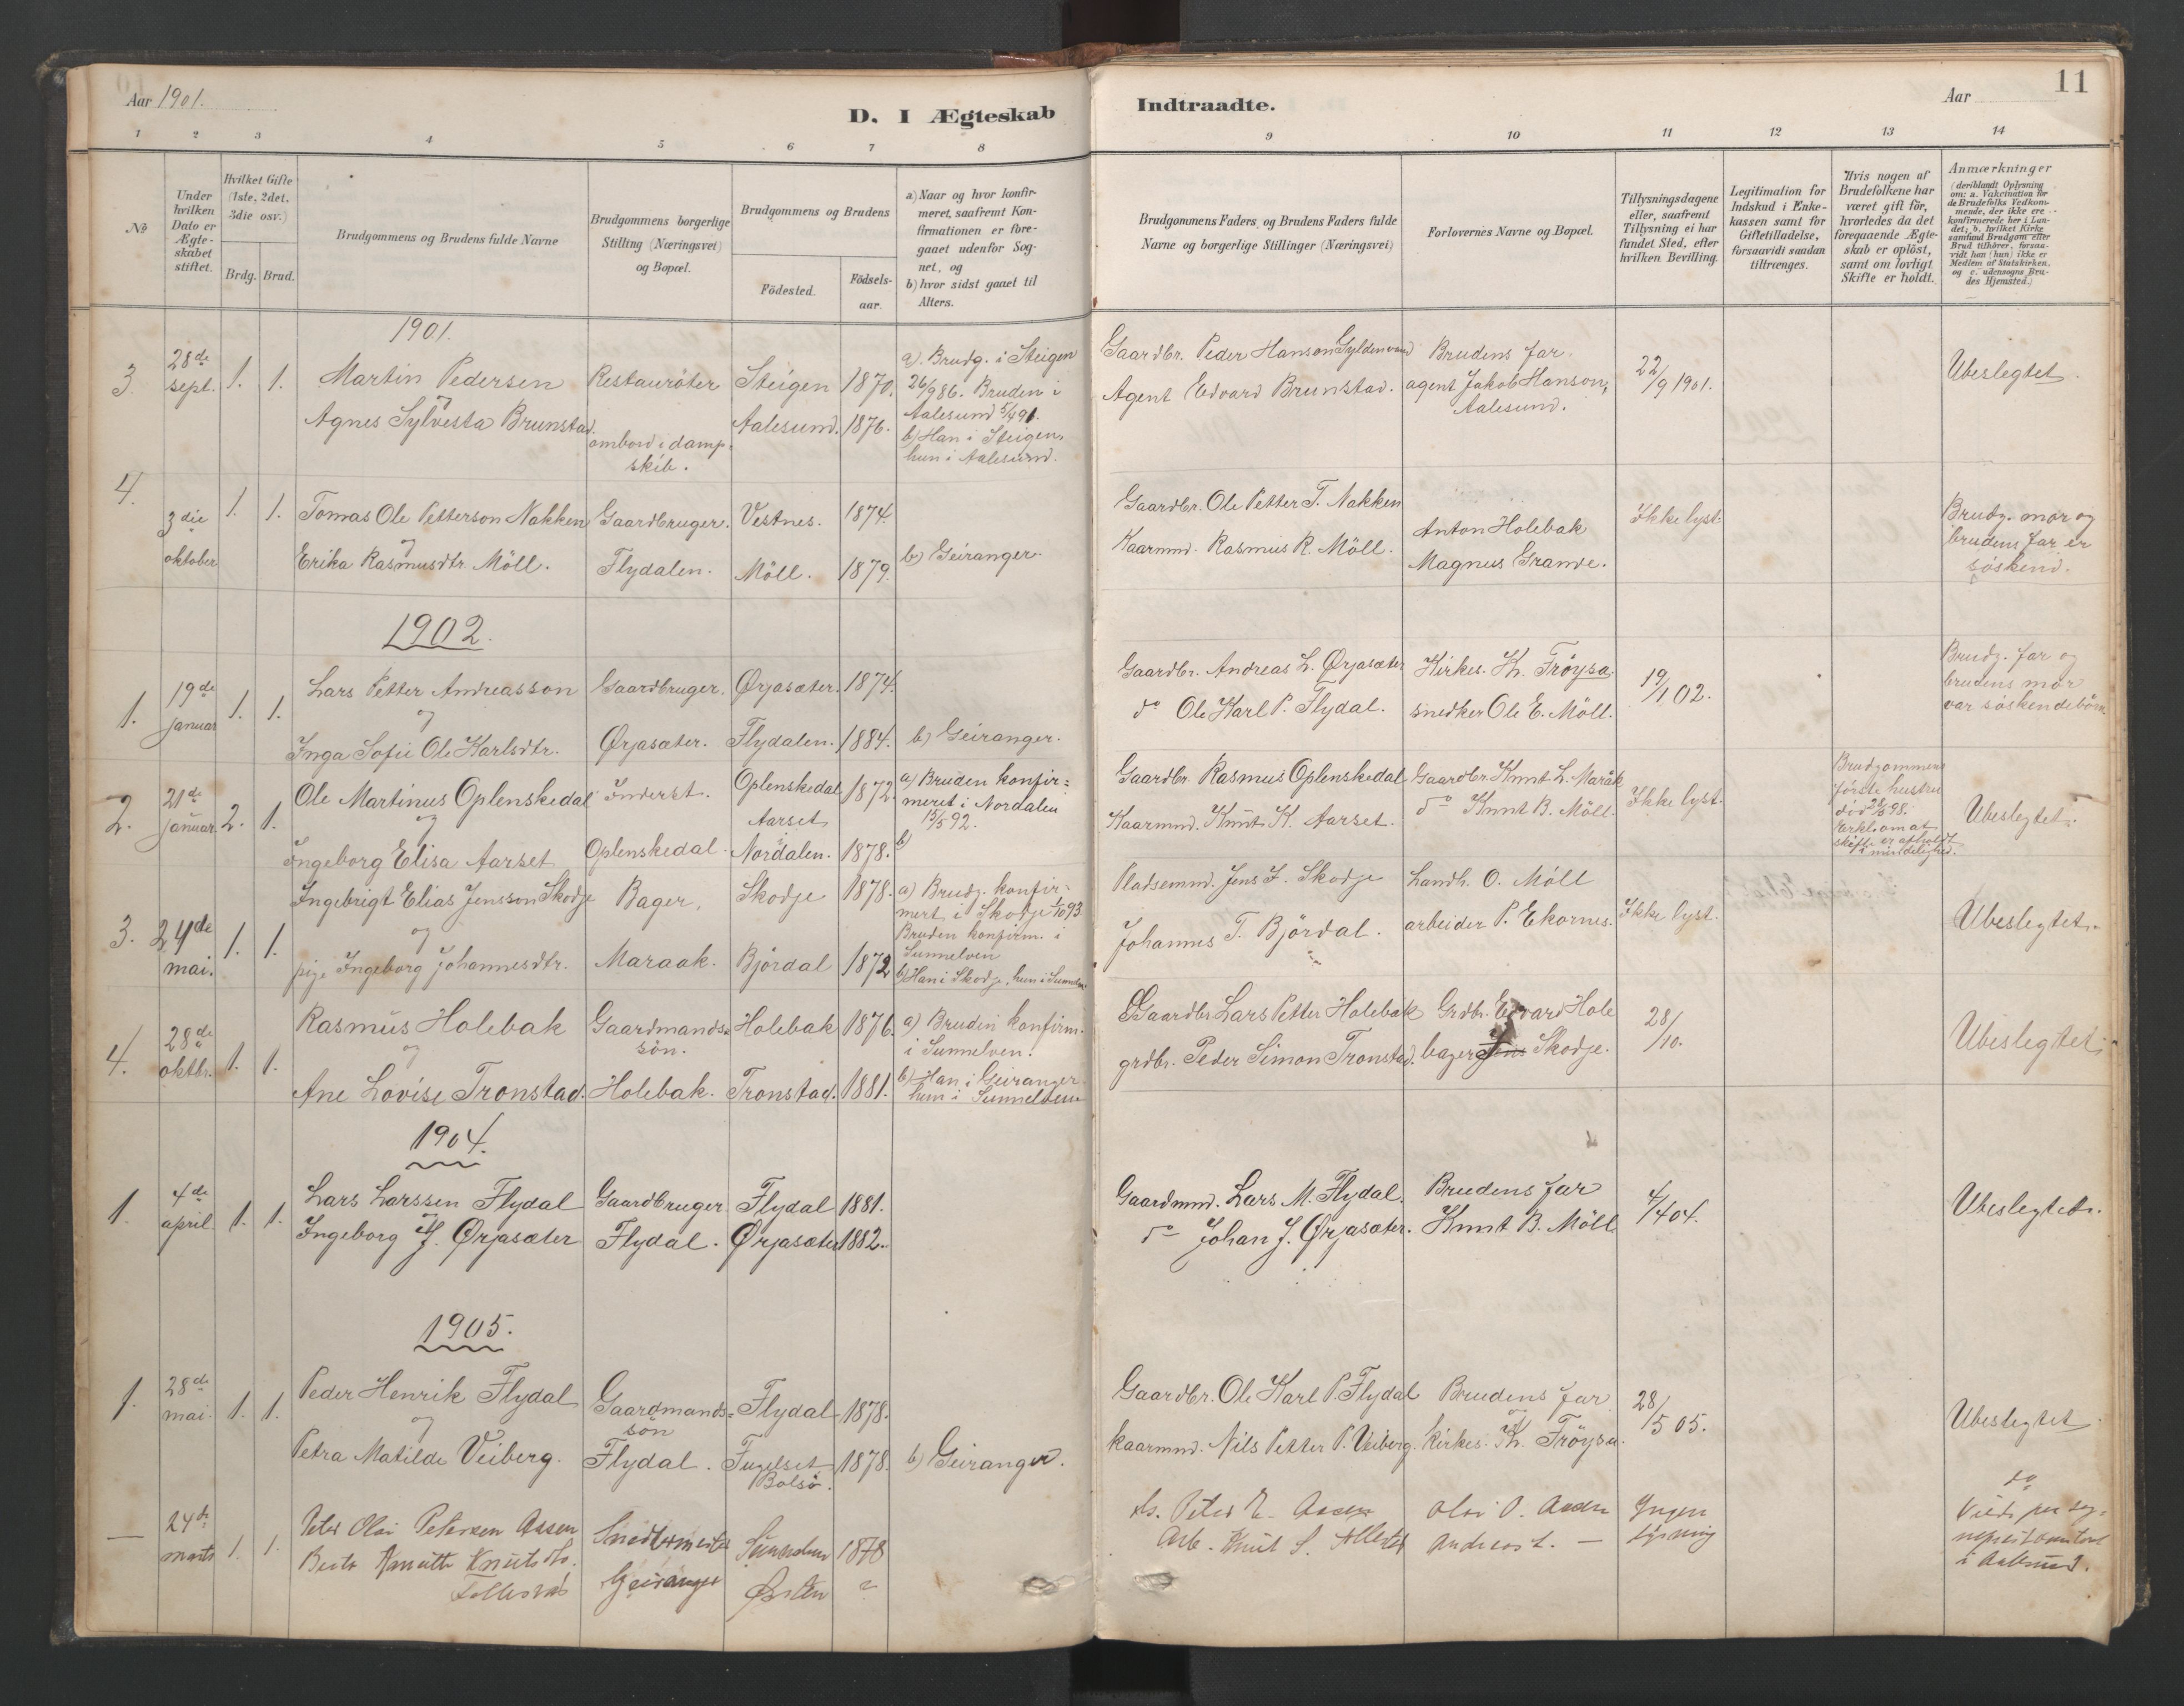 Aar 1901.
D. I Ægteskab
Indtraadte.
Aar
11
1 2 3 4 5 6 7 8 9 10 11 12 13 14
No
Under hvilken Dato er Ægteskabet stiftet.
Hvilket Gifte (1ste, 2det, 3die osv.)
Brdg. Brud.
Brudgommens og Brudens fulde Navne
Brudgommens borgerlige Stilling (Næringsvei) og Bopæl.
Brudgommens og Brudens
Födested.
Födsels-aar.
a) Naar og hvor konfirmeret, saafremt Konfirmationen er foregaaet udenfor Sognet, og
b) hvor sidst gaaet til Alters.
Brudgommens Faders og Brudens Faders fulde Navne og borgerlige Stillinger (Næringsvei)
Forlovernes Navne og Bopæl.
Tillysningsdagene eller, saafremt Tillysning ei har fundet Sted, efter hvilken Bevilling.
Legitimation for Indskud i Enkekassen samt for Giftetilladelse, forsaavidt saadan tiltrænges.
Hvis nogen af Brudefolkene har været gift för, hvorledes da det foregaaende Ægteskab er oplöst, samt om lovligt Skifte er holdt.
Anmærkninger (deriblandt Oplysning om: a. Vakcination for de Brudefolks Vedkommende, der ikke ere konfirmerede her i Landet; b. hvilket Kirkesamfund Brudgom eller Brud tilhörer, forsaavidt han (hun) ikke er Medlem af Statskirken, og c. udensogns Brudes Hjemsted.)
1901.
3. 28de sept. 1. 1. Martin Pedersen Restauratør Steigen 1870.
og
Agnes Sylvesta Brunstad. ombord i dampskib. Aalesund. 1876.
a) Brudg. i Steigen 26/9 86. Bruden i Aalesund 5/4 91.
b) Han i Steigen, hun i Aalesund.
Gaardbr. Peder Hanson Gyldenvand
Agent Edvard Brunstad.
Brudens far.
agent Jakob Hanson, Aalesund.
22/9 1901.
Ubeslegtet.
4. 3die oktober 1. 1. Tomas Ole Petterson Nakken Gaardbruger. Vestnes. 1874.
og
Erika Rasmusdtr. Möll. Flydalen. Möll. 1879. b) Geiranger.
Gaardbr. Ole Petter T. Nakken
Kaarmnd. Rasmus R. Möll.
Anton Holebak
Magnus Grande.
Ikke lyst.
Brudg. mor og brudens far er söskend.
1902.
1. 19de januar 1. 1. Lars Petter Andreasson Gaardbruger. Ørjasæter. 1874.
og
Inga Sofie Ole Karlsdtr. Ørjasæter. Flydalen. 1884. b) Geiranger.
Gaardbr. Andreas L. Ørjasæter
do Ole Karl P. Flydal.
Kirkes. K. Fröysa.
snedker Ole E. Möll.
19/1 02.
Brudg. far og brudens mor var söskendebörn
2. 21de januar. 2. 1. Ole Martinus Oplenskedal Inderst. Oplenskedal 1872.
og
Ingeborg Elisa Aarset Oplenskedal. Aarset Nordalen. 1878.
a) Bruden konfirmeret i Nordalen 15/5 92.
b)
Gaardbr. Rasmus Oplenskedal
Kaarmnd. Knut K. Aarset.
Gaardbr. Knut L. Maråk
do Knut B. Möll.
Ikke lyst.
Brudgommens förste hustru död 98. Erkl. om at skifte er afholdt i mindelighed.
Ubeslegtet.
3. 24de mai. 1. 1. Ingebrigt Elias Jensson Skodje Bager, Skodje 1878.
og
pige Ingeborg Johannesdtr. Maraak. Björdal 1872
a) Brudg. konfirmert i Skodje 1/10 93
Bruden konfirm. i Sunnelven
b) Han i Skodje, hun i Sunnelven
Pladsemnd. Jens J. Skodje
Johannes T. Björdal.
Landh. O. Möll
arbeider P. Ekornes.
Ikke lyst.
Ubeslegtet.
4. 28de oktbr. 1. 1. Rasmus Holebak Gaardmandssön. Holebak 1876.
og
Ane Lovise Tronstad. Holebak. Tronstad. 1881.
a) Bruden konfirm. i Sunnelven.
b) Han i Geiranger hun i Sunnelven
Gaardbr. Lars Petter Holebak
grdbr. Peder Simon Tronstad.
Grdbr. Edvard Hole
bager Jens Skodje.
28/10.
Ubeslegtet.
1904.
1. 4de april 1. 1. Lars Larssen Flydal Gaardbruger Flydal 1881.
og
Ingeborg J. Ørjasæter Flydal. Ørjasæter 1882.
Gaardmnd. Lars M. Flydal.
do Johan J. Ørjasæter.
Brudens far
Knut B. Möll
4/4 04.
Ubeslegtet.
1905.
1. 28de mai. 1. 1. Peder Henrik Flydal Gaardmandssön Flydal 1878.
og
Petra Matilde Veiberg. Flydal. Fugelset Bolsö. 1878. b) Geiranger.
Gaardbr. Ole Karl P. Flydal
kaarmnd. Nils Petter P. Veiberg.
Brudens far
kirkes. K. Fröysa.
28/5 05.
Ubeslegtet.
— 24de marts 1. 1. Peter Olai Petersen Aasen Snedkermester Sunnelven 1878
Knuts
Geiranger Ørsten ?
Peter E. Aasen
Arb. Knut S.
Olai P. Aasen
Andreas L. —
Ingen lysning
do